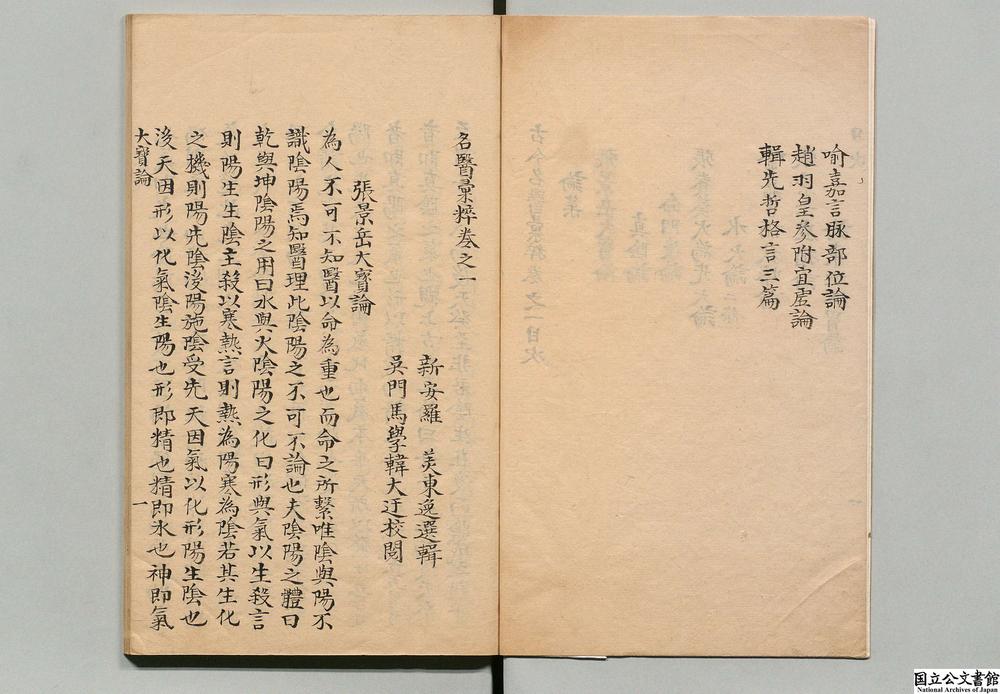 喻嘉言脉部位論
趙羽皇參附宜虛論
輯先哲格言三篇
名醫彙粹卷之一
新安羅 美東逸選輯
吳門馬學韓大迂校閱
張景岳大寶論
為人不可不知醫以命為重也而命之所繫唯陰與陽不
識陰陽焉知醫理此陰陽之不可不論也夫陰陽之體曰
乾與坤陰陽之用曰水與火陰陽之化曰形與氣以生殺言
則陽生生陰主殺以寒熱言則熱為陽寒為陰若其生化
之機則陽先陰後陽施陰受先天因氣以化形陽生陰也
後天因形以化氣陰生陽也形即精也精即水也神即氣
大寶論
一
国立公文書館
National Archives of Japan